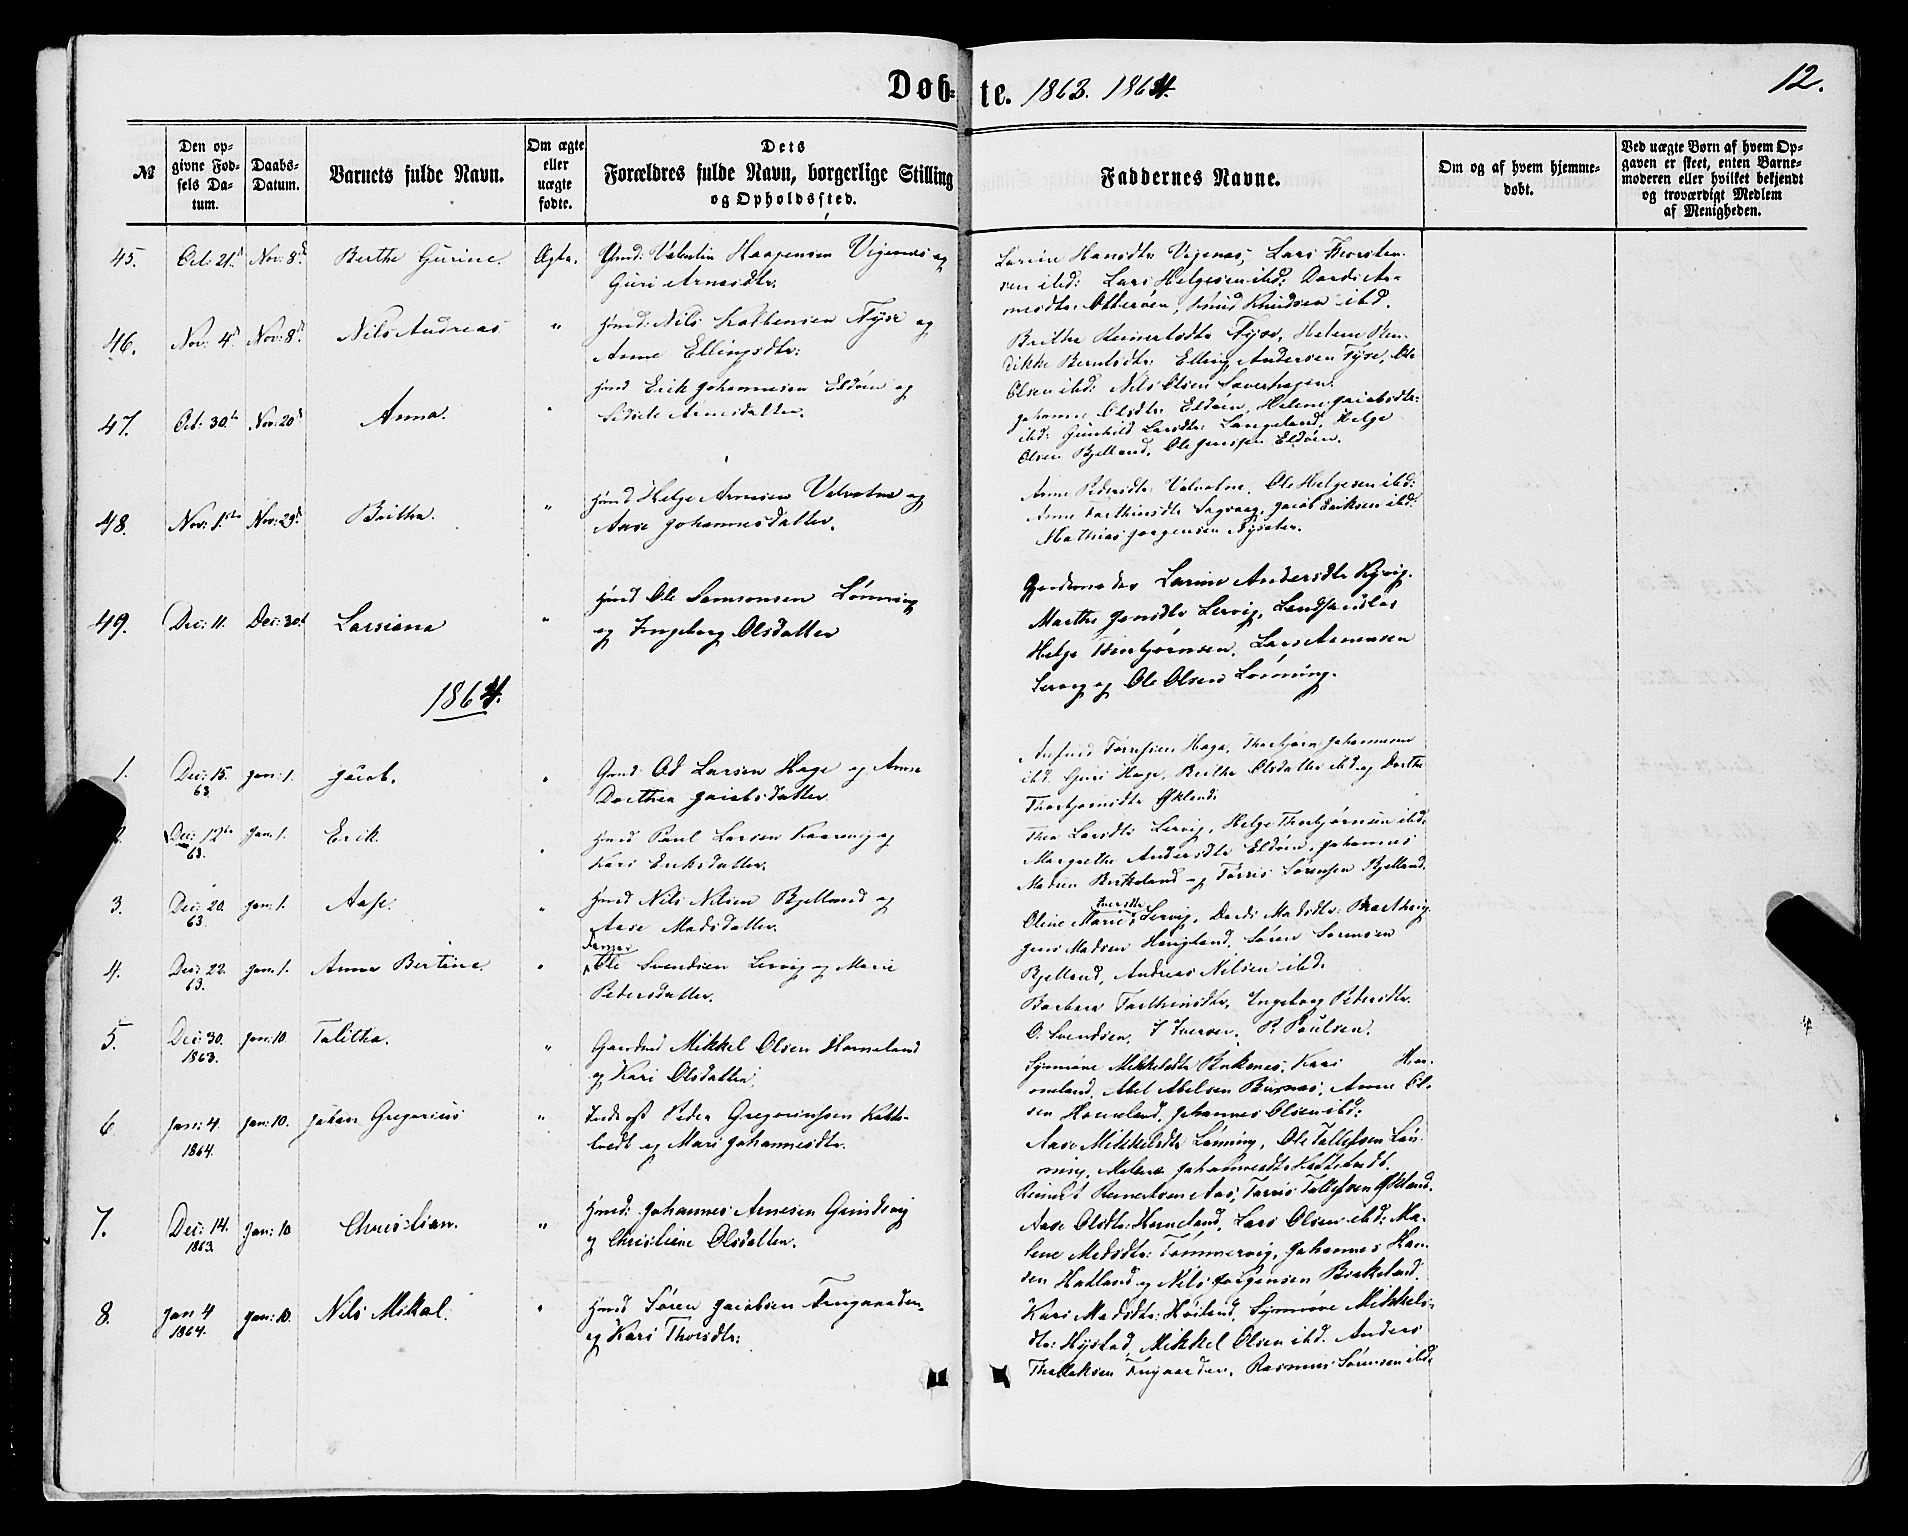 Døb- te. 1863. 1864. 12.
№
Den op-
givne Fød-
sels Da-
tum.
Daabs-
Datum.
Barnets fulde Navn.
Om ægte
eller
uægte
fødte.
Dets
Forældres fulde Navn, borgerlige Stilling
og Opholdssted.
Faddernes Navne.
Om og af hvem hjemme-
døbt.
Ved uægte Børn af hvem Op-
gaven er skeet, enten Barne-
moderen eller hvilket bekjendt
og troværdigt Medlem
af Menigheden.
45. Oct: 21. Nov: 8 Berthe Gurine. Ægte. Valentin Haagensen Vigenæs og
Guri Arnesdtr.
Larine Hansdtr Vigenæs, Lars Thorsten-
sen ibd: Lars Helgesen ibd: Dordi Ar-
nesdtr Otterøen, Knud Knudsen ibd.
46. Nov: 4 Nov: 8 Nils Andreas " Hmd: Nils Kolbensen Fyse og
Anne Ellingsdtr:
Britha Reinertsdtr Fyse, Helene Ben-
dikke Berntsdtr: Elling Andersen Fyse, Ole
Olsen ibd: Nils Olsen
47. Oct: 30 Nov: 20 Anna. " Hmd Erik Johannesen Eldøen og
Arnesdatter.
Johanne Olsdtr Eldøen, Helene Jacobsdtr:
ibd: Gunhild Larsdtr: Langeland, Helge
Olsen Bjelland, Ole Jensen Eldøen.
48. Nov: 1 Nov: 29 Britha. " Hmd Helge Arnesen Valvatne og
Aase Johannesdatter.
Anne Pedersdtr Valvatne. Ole Helgesen ibd:
Anne Sagvaag, Jacob Eriksen ibd.
Mathias Jørgensen
49. Dec: 11. Dec: 30 Larsiana " Hmd Ole Samsonsen Lønning
og Ingeborg Olsdatter
Larine Andersdtr
Marthe Jensdtr Lervig,
Helge Thorbjørnsen, Lars
Lervig og Ole Olsen Lønning.
1864.
1. Dec: 15. Jan: 1. Jacob. " Gmd: Od Larsen Hage og Anne
63. Dorthea Jacobsdatter.
Hage, Thorbjørn Johannesen
ibd. Guri Hage, Berthe Olsdatter ibd og Dorthe
Thorbjørnsdtr
Dec: 12 Jan: 1. Erik. " Hmd Poul Larsen Kaarevig og
63. Kari Eriksdatter.
Thea Larsdtr Lervig, Helge Thorbjørnsen ibd:
Margrethe Andersdtr Eldøen, Johannes
Madsen Birkeland og Tørris Sørensen Bjelland.
3. Dec: 20. Jan: 1. Aase. " Hmd Nils Nilsen Bjelland og
63. Aase Madsdatter.
Oline Marie Iversdtr Lervig, Dordi Madsdtr:
Jens Madsen Haugland, Søren Sørensen
Bjelland, Andreas Nilsen ibd.
4. Dec: 22. Jan: 1. Anna Bertine. " Ole Svendsen Lervig og Marie
63. Pedersdatter.
Barbara Ingeborg Pedersdtr.
O. Svendsen. I Iversen. P. Poulsen.
5. Dec: 30. Jan: 10. Talitha. " Gaardmd Mikkel Olsen Horneland
1863. og Kari Olsdatter.
Synnøve Mikkelsdtr Kari Hor-
neland, Abel Abelsen Anne Ol-
sen Horneland, Johannes Olsen ibd:
6. Jan: 4. Jan: 10. Johan Gregorius " Inderst Peder Gregoriussen Katte-
1864. tvedt og Mari Johannesdtr.
Aase Mikkelsdtr Lønning, Ole Tollefsen Løn-
ning, Malene Johannesdtr Kattetvedt.
Reinert Reinertsen Aas, Tørris Tollefsen
7. Dec: 14. Jan: 10. Christian. " Hmd: Johannes Arnesen Grindsvig
1863. og Christine Olsdatter.
Aase Olsdtr: Horneland, Lars Olsen ibd: Ma-
lene Madsdtr: Tømmervig, Johannes Han-
sen Hatland og Nils Jørgensen Birkeland.
8. Jan 4 Jan: 10. Nils Mikal. " Hmd Søren Jacobsen Frugaarden
1864. og Kari Thorsdtr:
Kari Madsdtr: Høiland, Synnøve Mikkels-
dtr: Hystad, Mikkel Olsen ibd. Anders
Thollaksen Frugaarden, Rasmus Sørensen ibd.